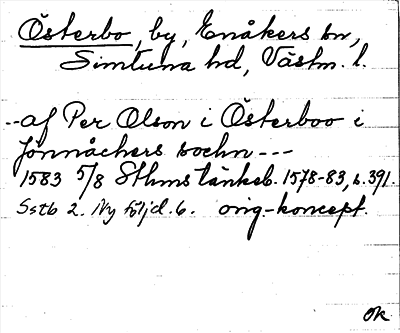 Österbo, by, Enåkers sn,
Simtuna hd, Västm. l.
--af Per Olson i Österboo i
Jönnåchers sochn ---
1583 5/8 Sthms tänkeb. 1578-83, s. 391.
Sstb 2. Ny följd. 6. orig-koncept.
OK